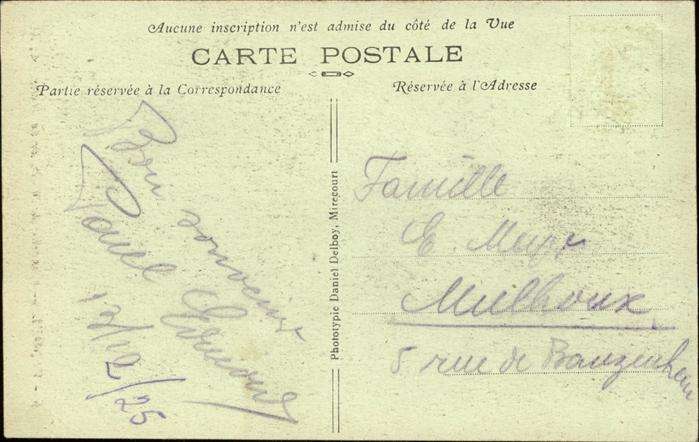 Aucune inscription n'est admise du côté de la Vue
CARTE POSTALE
Partie réservée à la Correspondance
Réservée à l'Adresse
Bon souvenir
Paul
13/12/25
Phototypie Daniel Delboy, Mirecourt
Famille
E. Meyer
Mulhouse
5 rue de Banzenheim